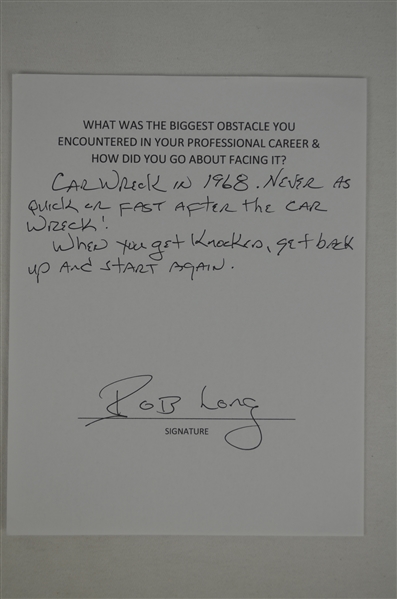 WHAT WAS THE BIGGEST OBSTACLE YOU
ENCOUNTERED IN YOUR PROFESSIONAL CAREER &
HOW DID YOU GO ABOUT FACING IT?
CAR WRECK IN 1968. NEVER AS
quick or FAST AFTER the CAR
WRECK!
When you get Knocked, get back
up AND START AGAIN.
ROB Long
SIGNATURE